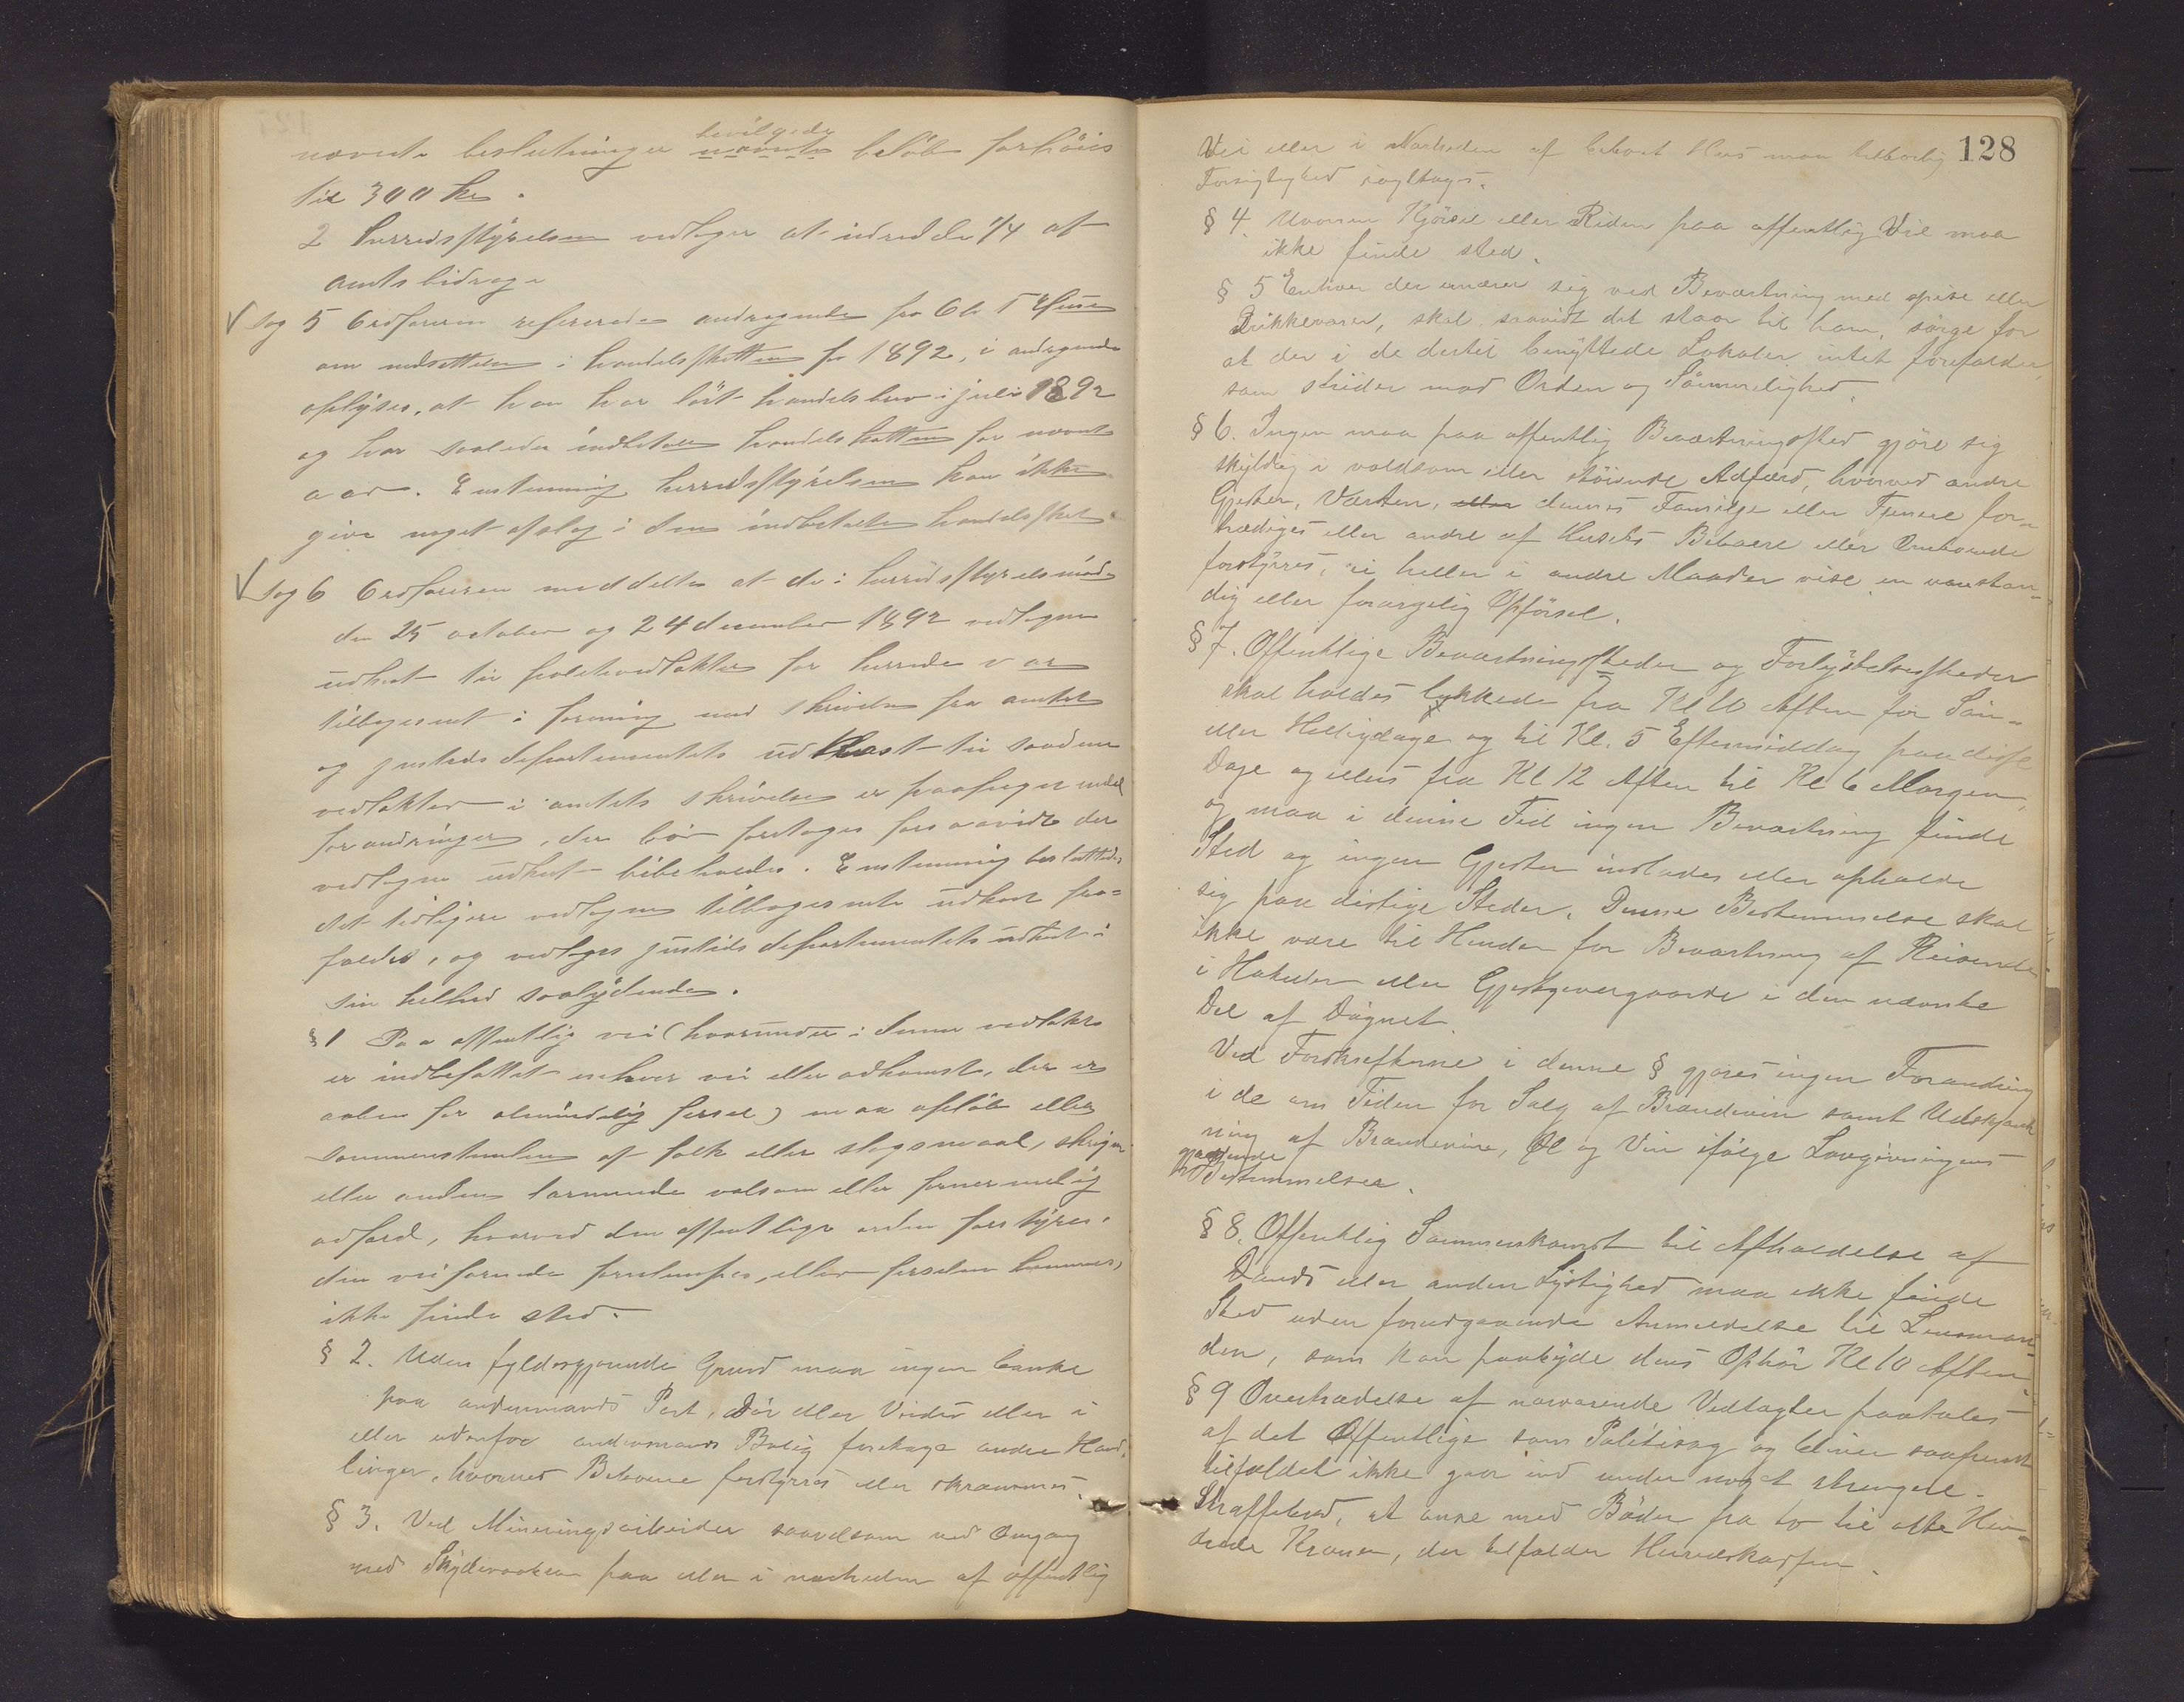 bevilgede
nævnte beslutninger nævnte beløb forhøies
til 300 kr.
2 herredsstyrelsen vedtager at udrede 1/4 af
amtsbidraget
Sag 5 Ordføreren refererede andragende fra Ole T
om nedsættelse i handelsskatten for 1892, i andragende
oplyses, at han har løst handelsbrev i juli 1892
og har saaledes indbetalt handelsskatten for nævnte
aar. Enstemmig herredsstyrelsen kan ikke
give noget afslag i den indbetalte handelsskat.
Sag 6 Ordføreren meddelte at de i herredsstyrelsmøde
den 25 october og 24 december 1892 vedtagne
udkast til politivedtekter for herredet var
tilbagesent i forening med skrivelse fra amtet
og justisdepartementets udkast til saadane
vedtekter i amtets skrivelse er paapeget endel
forandringer, der bør foretages forsaavidt det
vedtagne udkast bibeholdes. Enstemmig besluttedes
det tidligere vedtagne tilbagesente udkast fra=
faldes, og vedtages justisdepartementets udkast i
sin helhed saalydende.
§ 1 Paa offentlig vei (hvorunder i denne vedtekt
er indbefattet enhver vei eller adkomst, der er
aaben for almindelig færsel) maa opløb eller
sammenstimlen af folk eller slagsmaal, skrigen
eller anden larmende volsom eller fornærmelig
adfærd, hvorved den offentlige orden forstyres,
den veifarende forulempes, eller færselen hemmes,
ikke finde sted.
§ 2. Uden fyldestgjørende Grund maa ingen banke
paa andenmands Port, Dør eller Vindu eller i
eller udenfor andenmands Bolig foretage andre Hand=
linger, hvorved Beboerne forstyrres eller skræmmes.
§ 3. Ved Mineringsarbeider saavelsom ved Omgang
med Skydevaaben paa eller i nærheden af offentlig
128
Vei eller i Nærheden af beboet Hus maa tilbørlig
Forsigtighed iagttages.
§ 4. Uvorren Kjørsel eller Riden paa offentlig Vei maa
ikke finde sted.
§ 5 Enhver der ernærer sig ved Beværtning med spise eller
Drikkevarer, skal saavidt det staar til ham, sørge for
at der i de dertil benyttede Lokaler intet forefalder,
som strider mod Orden og Sømmelighed.
§ 6. Ingen maa paa offentlig Beværtningssted gjøre sig
skyldig i voldsom eller støiende Adfærd, hvorved andre
Gjester, Værten, eller dennes Familje eller Tjenere for=
trædiges eller andre af Husets Beboere eller Omboende
forstyrres, ei heller i andre Maader vise en uanstæn=
dig eller forargelig Opførsel.
§ 7. Offentlige Beværtningssteder og Forlystelsessteder
skal holdes lukkede fra Kl 10 Aften før Søn=
eller Helligdage og til Kl. 5 Eftermiddag paa disse
Dage og ellers fra Kl 12 Aften til Kl 6 Morgen,
og maa i denne Tid ingen Beværtning finde
Sted og ingen Gjester indlades eller opholde
sig paa deslige Steder. Denne Bestemmelse skal
ikke være til Hinder for Beværtning af Reisende
i Hoteller eller Gjestgivergaarde i den nævnte
Del af Døgnet.
Ved Forskrifterne i denne § gjøres ingen Forandring
i de om Tiden for Salg af Brændevin samt Udskjænk
ning af Brændevin, Øl og Vin ifølge Lovgivningens
gjældende
Bestemmelser.
§ 8. Offentlig Sammenkomst til Afholdelse af
Dands eller anden Lystighed maa ikke finde
Sted uden forudgaaende Anmeldelse til Lensman=
den, som kan paabyde dens Ophør Kl 10 Aften.
§ 9 Overtrædelse af nærværende Vedtægter paatales
af det Offentlige som Politisag og bliver saafremt
tilfældet ikke gaar ind under noget strengere
Straffebud, at anse med Bøder fra to til otte Hun=
drede Kroner, der tilfalder Herredskassen.